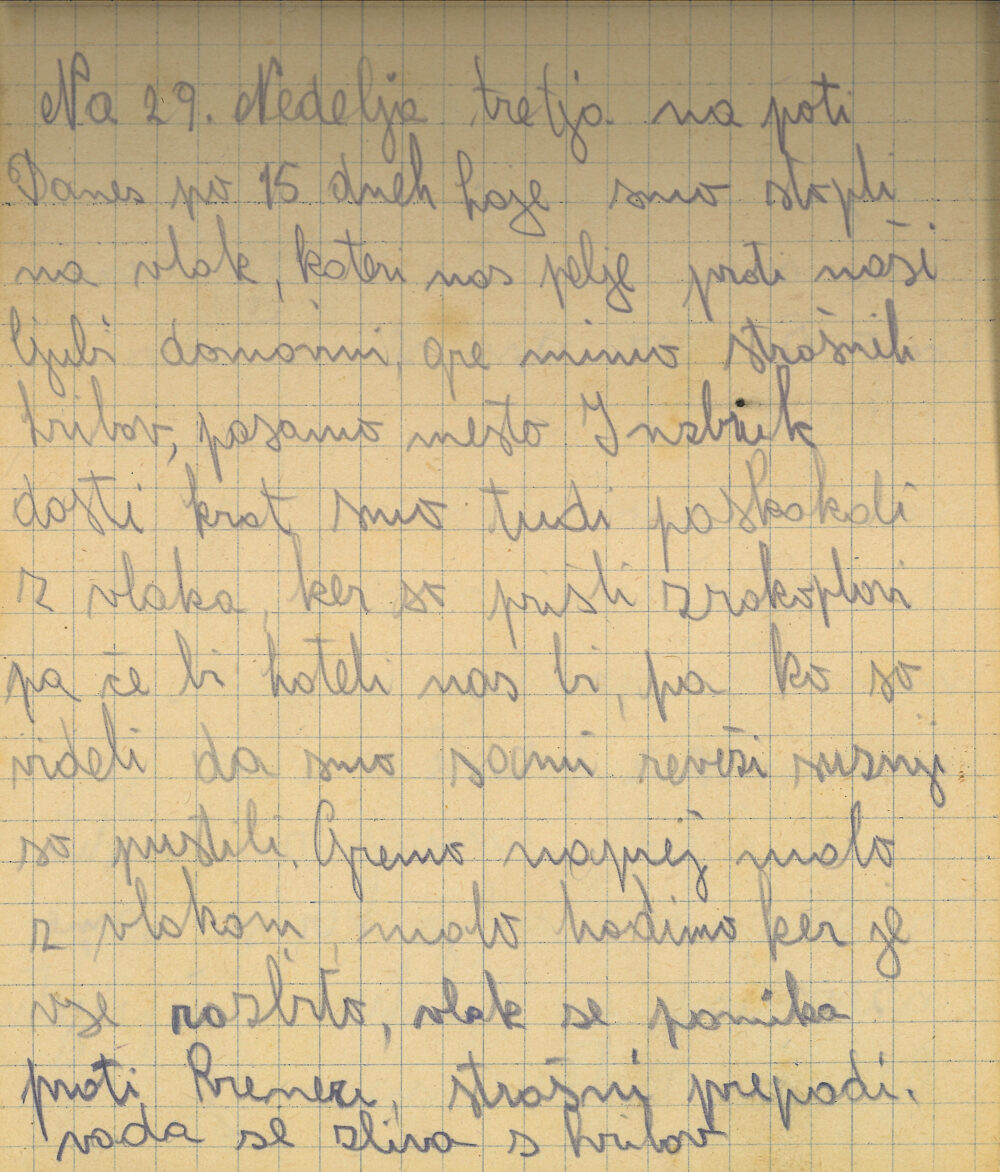 Na 29. Nedelja tretja na poti
Danes po 15 dneh hoje smo stopli
na vlak, kateri nas pelje proti naši
ljubi domovini, gre mimo strašnih
hribov, pasamo mesto Inzbruk
dosti krat smo tudi poskakali
z vlaka, ker so prišli zrakoplovi
pa če bi hoteli nas bi, pa ko so
videli da smo sami reveži sužnji
so pustili. Gremo naprej malo
z vlakom, malo hodimo ker je
vse razbito, vlak se pomika
proti Breneri, strašni prepadi.
voda se zliva s hribov